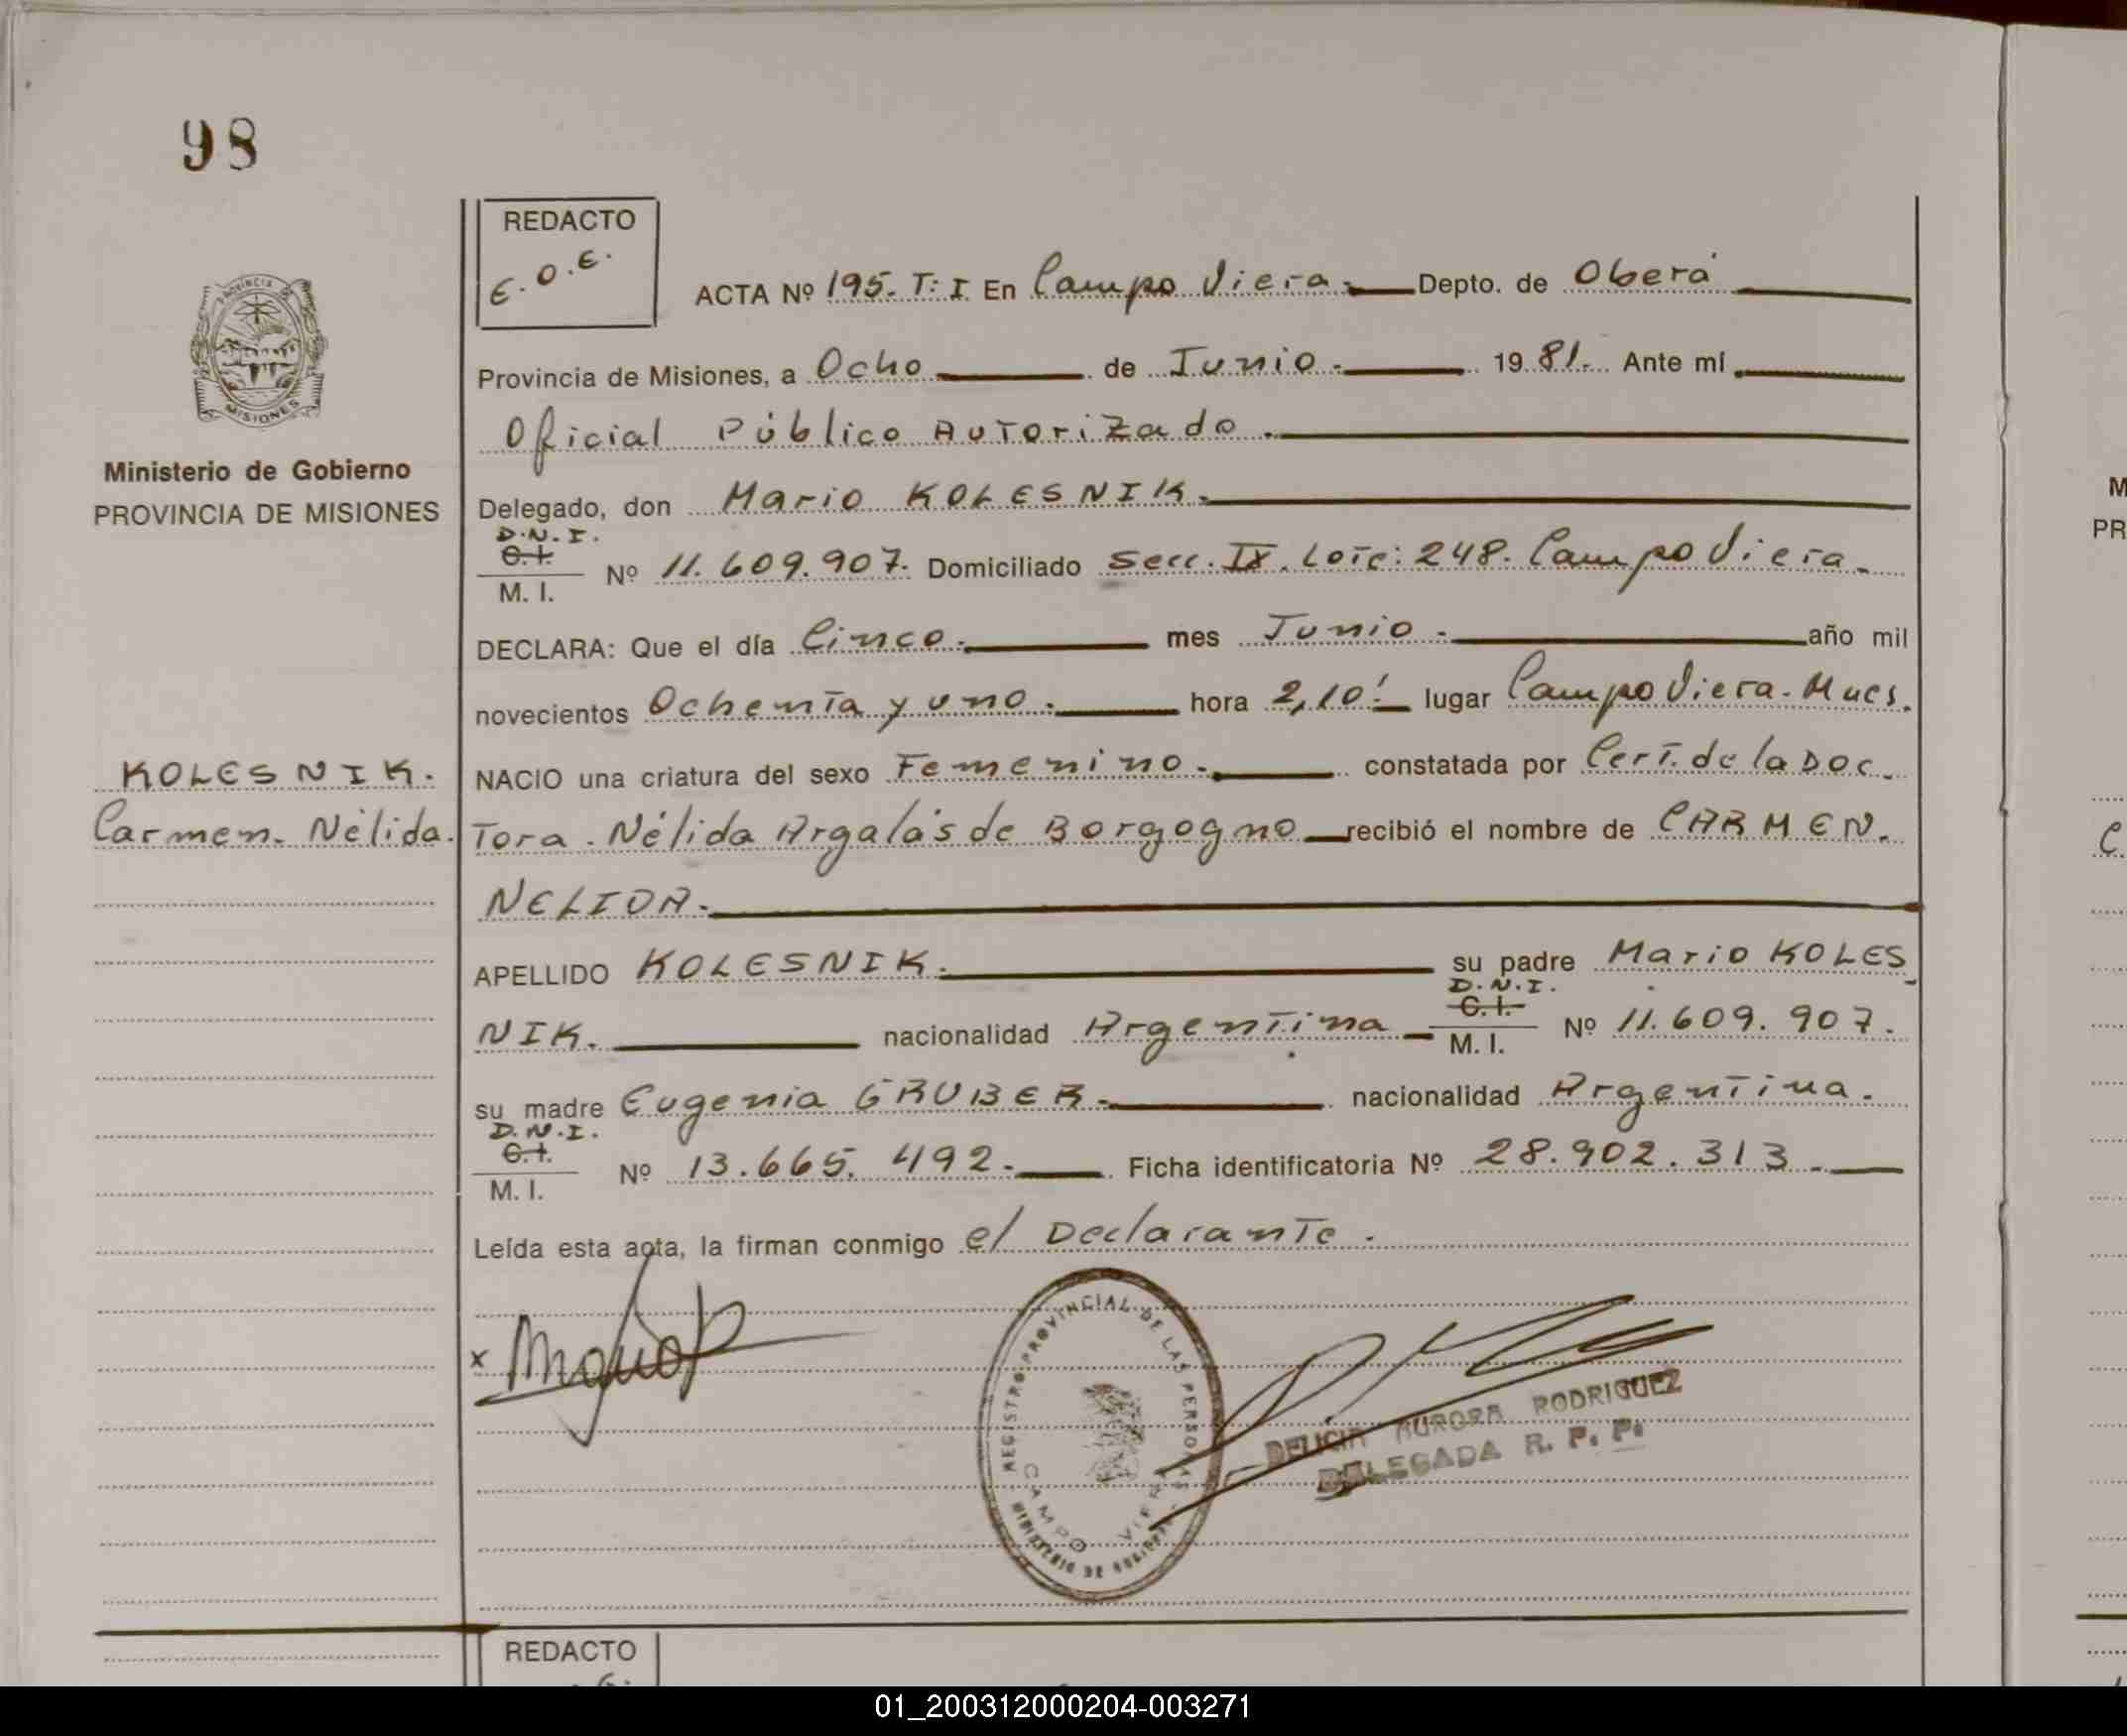 98
REDACTO
E.O.E.
ACTA Nº 195. T: I En Campo Viera.- Depto. de Oberá
Provincia de Misiones, a Ocho de Junio.- 1981.- Ante mí
Oficial Público Autorizado.-
PROVINCIA DE
MISIONES
Ministerio de Gobierno
PROVINCIA DE MISIONES
Delegado, don Mario KOLESNIK.-
D.N.I.
C.I.
M. I. Nº 11.609.907. Domiciliado Secc. IX. Lote: 248. Campo Viera.-
DECLARA: Que el día Cinco.- mes Junio.- año mil
novecientos Ochenta y uno.- hora 2,10!- lugar Campo Viera. Mnes.
KOLESNIK.
NACIO una criatura del sexo Femenino.- constatada por Cert. de la Doc-
Carmen. Nélida.
tora. Nélida Argalás de Borgogno recibió el nombre de CARMEN.
NELIDA.-
APELLIDO KOLESNIK.- su padre Mario KOLES-
NIK.- nacionalidad Argentina.-
D.N.I.
C.I.
M. I. Nº 11.609.907.
su madre Eugenia GRUBER.- nacionalidad Argentina.
D.N.I.
C.I.
M. I. Nº 13.665.492.- Ficha identificatoria Nº 28.902.313.-
Leída esta acta, la firman conmigo el Declarante.
x
REGISTRO PROVINCIAL DE LAS PERSONAS
CAMPO VIERA
MINISTERIO DE GOBIERNO
DELICIA AURORA RODRIGUEZ
DELEGADA R. P. P.
REDACTO
M
PR
C
01_200312000204-003271